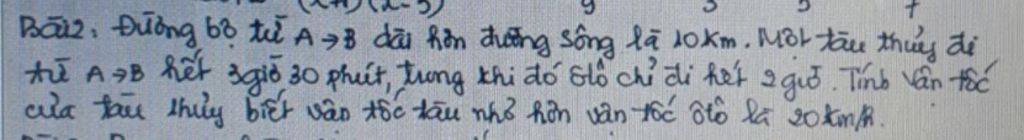 Bài 2: Đường bộ từ A → B dài hơn đường sông là 10km. Một tàu thủy đi
từ A → B hết 3 giờ 30 phút, trong khi đó ôtô chỉ đi hết 2 giờ. Tính vận tốc
của tàu thủy biết vận tốc tàu nhỏ hơn vận tốc ôtô là 20km/h.